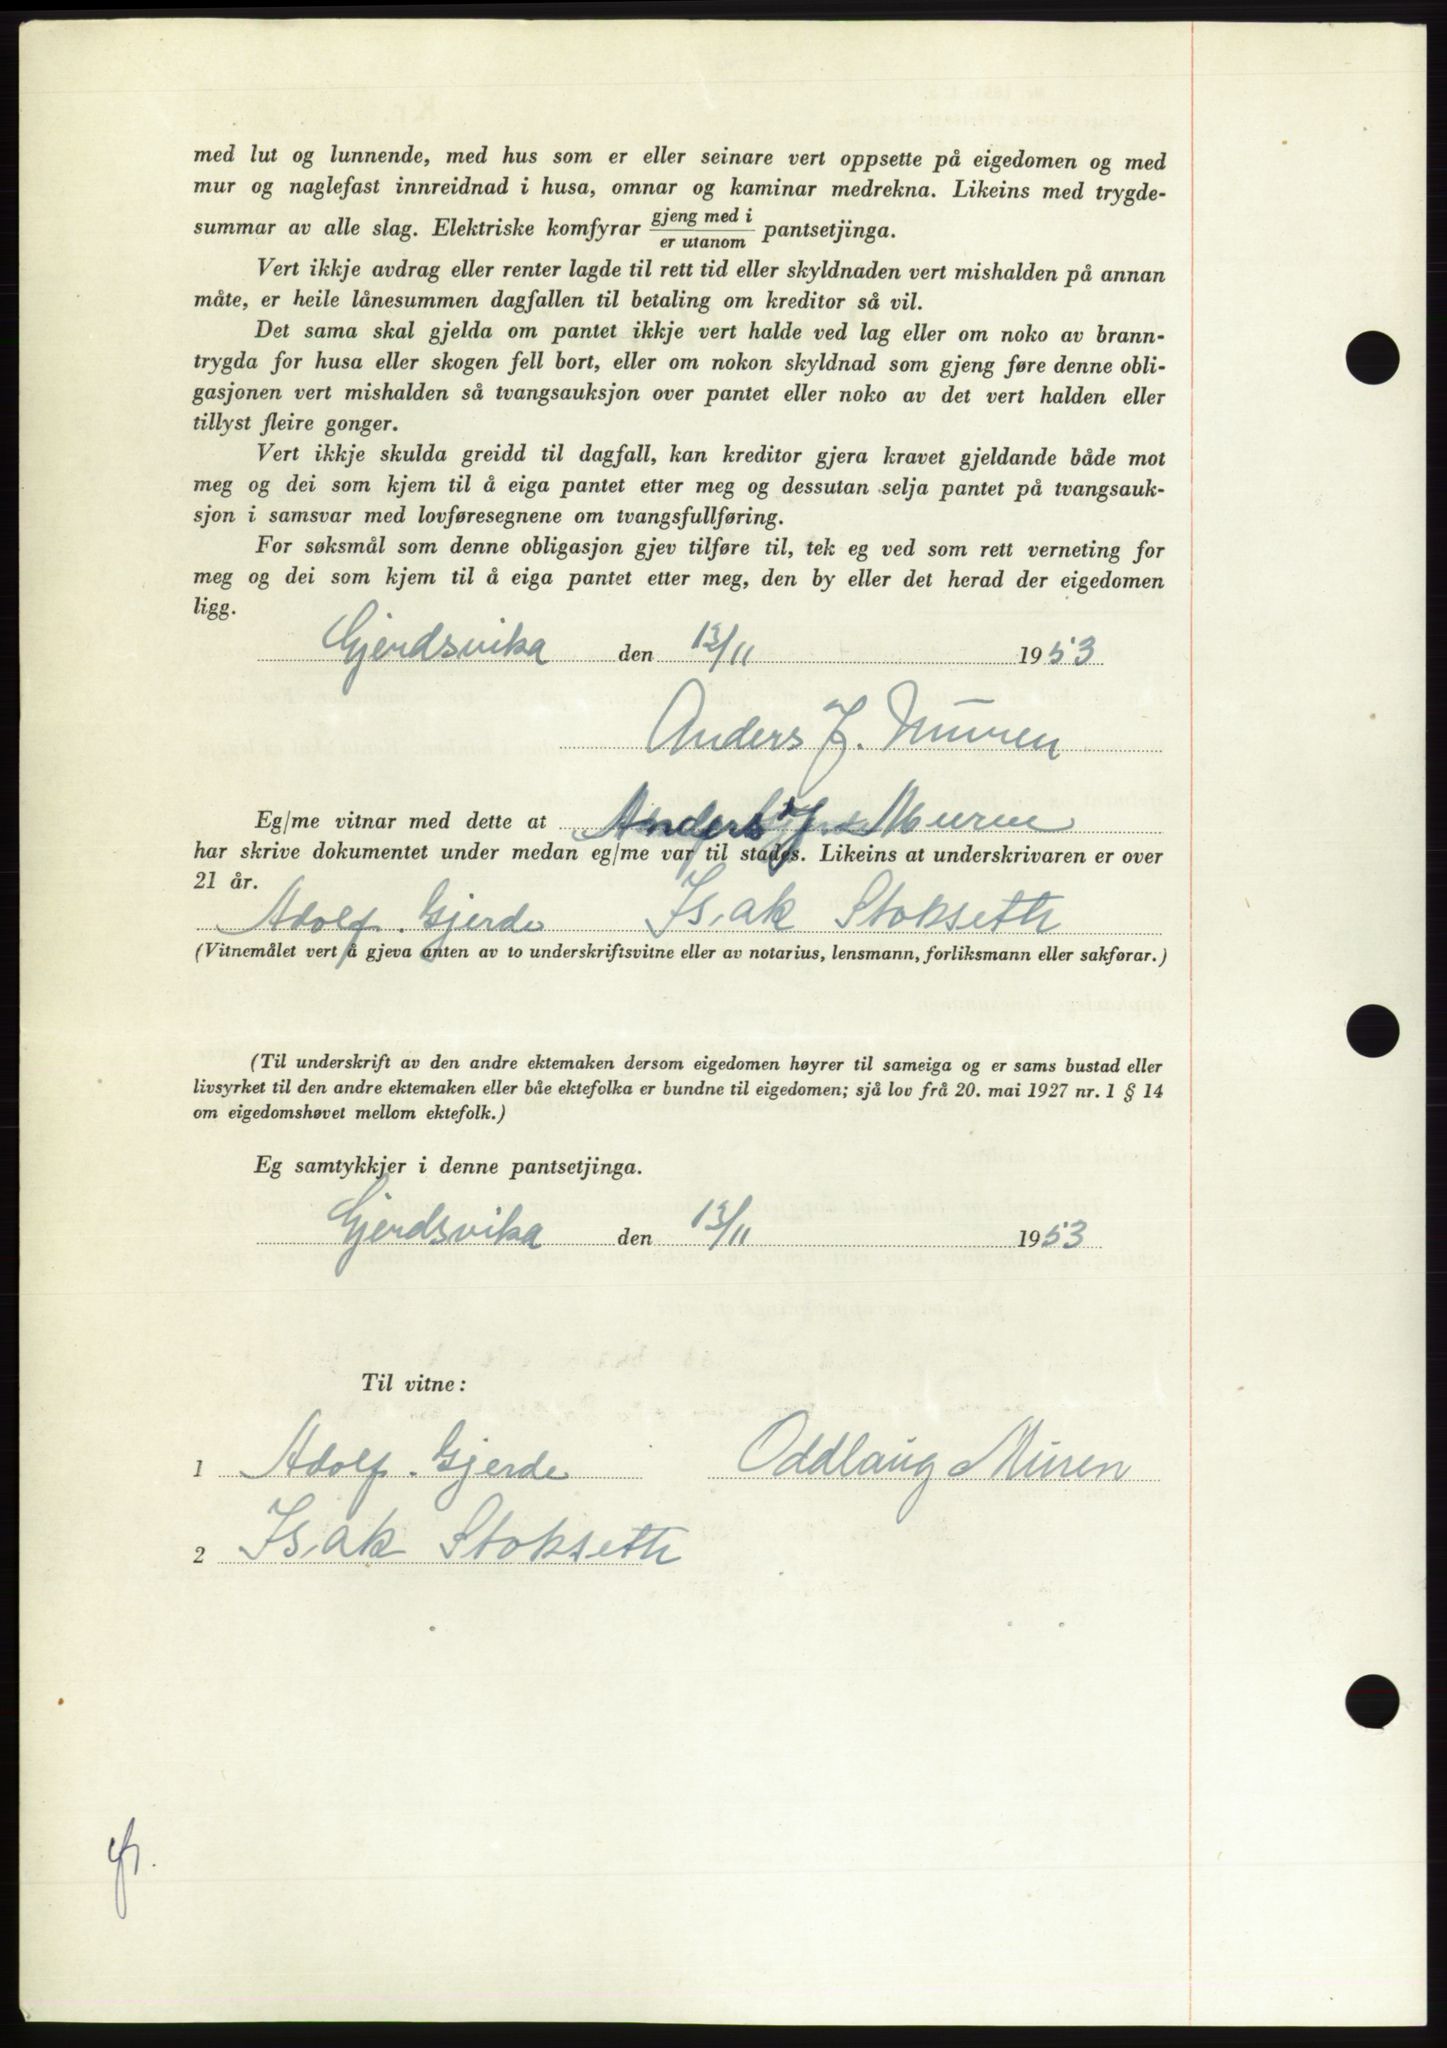 med lut og lunnende, med hus som er eller seinare vert oppsette på eigedomen og med
mur og naglefast innreidnad i husa, omnar og kaminar medrekna. Likeins med trygde-
summar av alle slag. Elektriske komfyrar gjeng med i / er utanom pantsetjinga.
Vert ikkje avdrag eller renter lagde til rett tid eller skyldnaden vert mishalden på annan
måte, er heile lånesummen dagfallen til betaling om kreditor så vil.
Det sama skal gjelda om pantet ikkje vert halde ved lag eller om noko av brann-
trygda for husa eller skogen fell bort, eller om nokon skyldnad som gjeng føre denne obli-
gasjonen vert mishalden så tvangsauksjon over pantet eller noko av det vert halden eller
tillyst fleire gonger.
Vert ikkje skulda greidd til dagfall, kan kreditor gjera kravet gjeldande både mot
meg og dei som kjem til å eiga pantet etter meg og dessutan selja pantet på tvangsauk-
sjon i samsvar med lovføresegnene om tvangsfullføring.
For søksmål som denne obligasjon gjev tilføre til, tek eg ved som rett verneting for
meg og dei som kjem til å eiga pantet etter meg, den by eller det herad der eigedomen
ligg.
Gjerdsvika den 13/11 1953
Anders J. Muren
Eg/me vitnar med dette at Anders J. Muren
har skrive dokumentet under medan eg/me var til stades. Likeins at underskrivaren er over
21 år.
Adolf Gjerde Isak Stokseth
(Vitnemålet vert å gjeva anten av to underskriftsvitne eller av notarius, lensmann, forliksmann eller sakførar.)
(Til underskrift av den andre ektemaken dersom eigedomen høyrer til sameiga og er sams bustad eller
livsyrket til den andre ektemaken eller båe ektefolka er bundne til eigedomen; sjå lov frå 20. mai 1927 nr. 1 § 14
om eigedomshøvet mellom ektefolk.)
Eg samtykkjer i denne pantsetjinga.
Gjerdsvika den 13/11 1953
Til vitne:
1 Adolf Gjerde Oddlaug Muren
2 Isak Stokseth